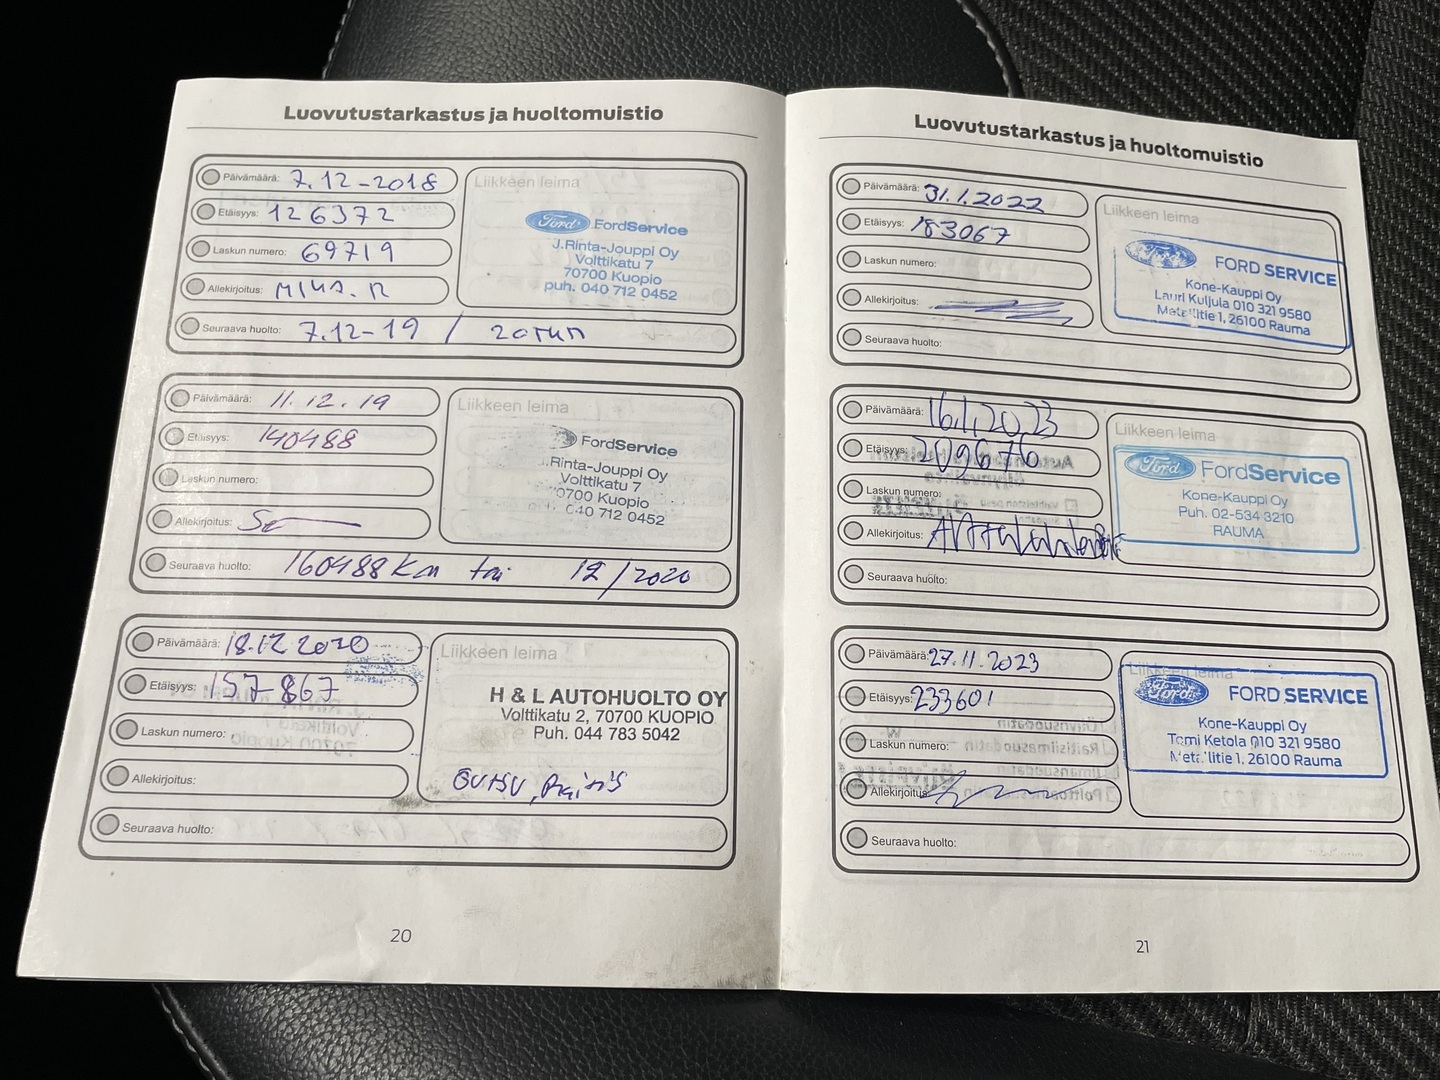 Luovutustarkastus ja huoltomuistio
Päivämäärä: 7.12-2018
Etäisyys: 126372
Laskun numero: 69719
Allekirjoitus: MIKA. R
Seuraava huolto: 7.12-19 / 20TKM
Liikkeen leima
Ford FordService
J.Rinta-Jouppi Oy
Volttikatu 7
70700 Kuopio
puh. 040 712 0452
Päivämäärä: 11.12.19
Etäisyys: 140488
Laskun numero:
Allekirjoitus:
Seuraava huolto: 160488 Km tai 12/2020
Liikkeen leima
FordService
.Rinta-Jouppi Oy
Volttikatu 7
0700 Kuopio
040 712 0452
Päivämäärä: 18.12 2020
Etäisyys: 157-867
Laskun numero:
Allekirjoitus:
Seuraava huolto:
Liikkeen leima
H & L AUTOHUOLTO OY
Volttikatu 2, 70700 KUOPIO
Puh. 044 783 5042
20
Luovutustarkastus ja huoltomuistio
Päivämäärä: 31.1.2022
Etäisyys: 183067
Laskun numero:
Allekirjoitus:
Seuraava huolto:
Liikkeen leima
Ford FORD SERVICE
Kone-Kauppi Oy
Lauri Kuljula 010 321 9580
Metallitie 1, 26100 Rauma
Päivämäärä: 16.1.2023
Etäisyys: 209676
Laskun numero:
Allekirjoitus:
Seuraava huolto:
Liikkeen leima
Ford FordService
Kone-Kauppi Oy
Puh. 02-534 3210
RAUMA
Päivämäärä: 27.11.2023
Etäisyys: 233601
Laskun numero:
Allekirjoitus:
Seuraava huolto:
Liikkeen leima
Ford FORD SERVICE
Kone-Kauppi Oy
Tomi Ketola 010 321 9580
Metallitie 1, 26100 Rauma
21